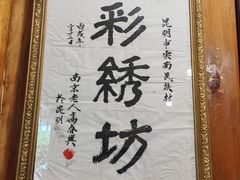 昆明市云南民族村
彩绣坊
丙戌年
南京老人高春兴
于昆明